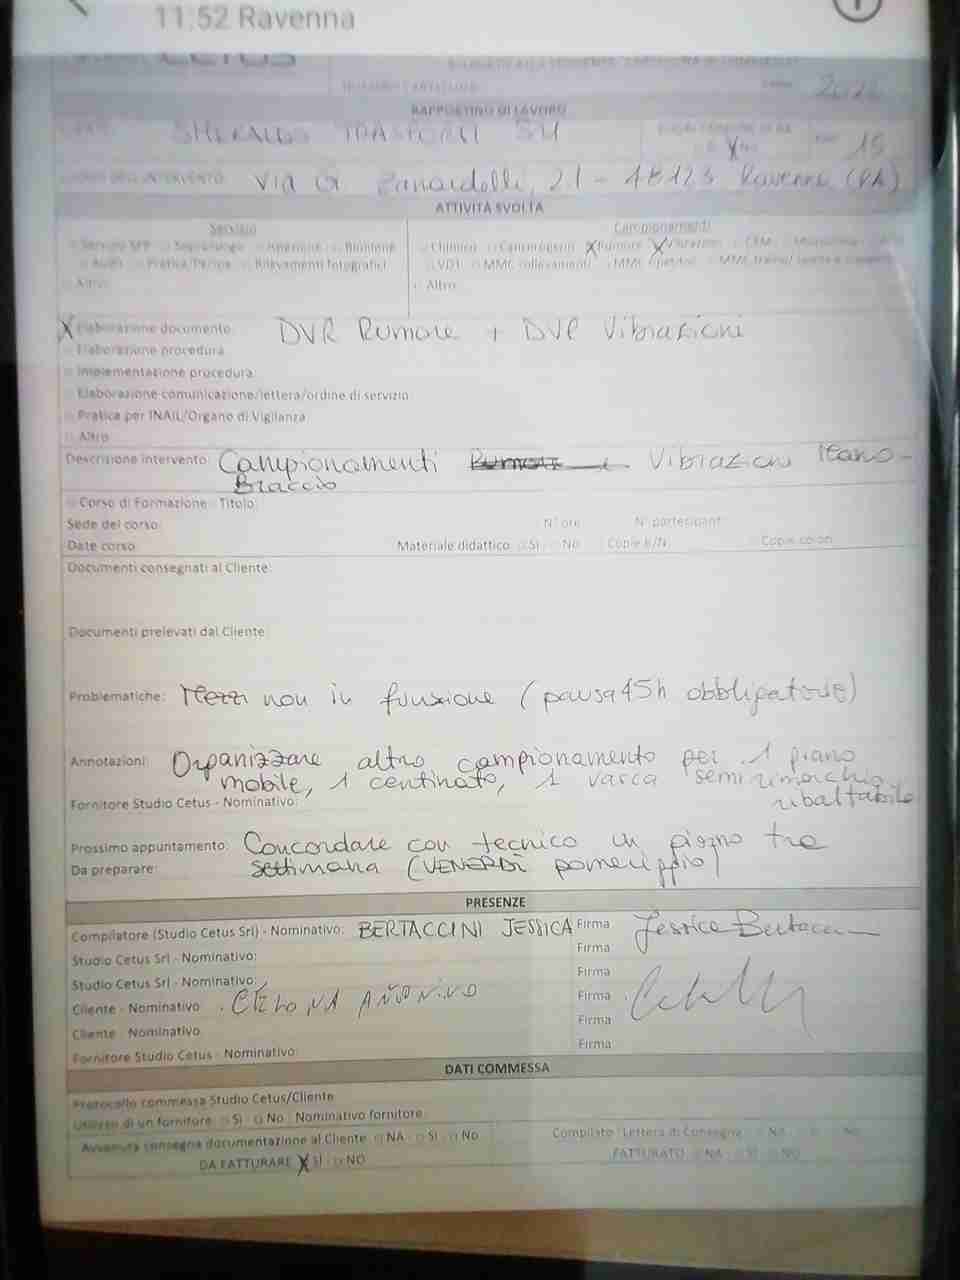 11:52 Ravenna
RAPPORTINO DI LAVORO
SMERALDO TRASPORTI
15
LUOGO DELL'INTERVENTO: Via G Zanardelli, 21 - 48123 Ravenna (RA)
ATTIVITÀ SVOLTA
Servizio
Campionamenti
Servizio SPP Sopralluogo Riunione Riunione
Chimico Cancerogeni X Rumore X Vibrazioni CEM
Audit Pratica/Perizia Rilevamenti fotografici
VDT MMC sollevamenti MMC ripetitivi MMC traino/
Altro:
Altro:
X Elaborazione documento: DVR Rumore + DVR Vibrazioni
Elaborazione procedura
Implementazione procedura
Elaborazione comunicazione/lettera/ordine di servizio
Pratica per INAIL/Organo di Vigilanza
Altro
Descrizione intervento: Campionamenti Rumore e Vibrazioni Mano-
Braccio
Corso di Formazione - Titolo:
Sede del corso: N° ore N° partecipanti
Date corso: Materiale didattico Sì No Copie B/N Copie colori
Documenti consegnati al Cliente:
Documenti prelevati dal Cliente:
Problematiche: Mezzi non in funzione (pausa 45h obbligatoria)
Annotazioni: Organizzare altro campionamento per 1 piano
mobile, 1 centinato, 1 vasca semirimorchio
ribaltabile
Fornitore Studio Cetus - Nominativo:
Prossimo appuntamento: Concordare con tecnico un giorno tra
Da preparare: settimana (VENERDÌ pomeriggio)
PRESENZE
Compilatore (Studio Cetus Srl) - Nominativo: BERTACCINI JESSICA Firma Jessica Bertaccini
Studio Cetus Srl - Nominativo: Firma
Studio Cetus Srl - Nominativo: Firma
Cliente - Nominativo Firma
Cliente - Nominativo Firma
Fornitore Studio Cetus - Nominativo: Firma
DATI COMMESSA
Protocollo commessa Studio Cetus/Cliente
Utilizzo di un fornitore Sì No Nominativo fornitore:
Avvenuta consegna documentazione al Cliente NA - Sì No
Compilato Lettera di Consegna NA No
DA FATTURARE X SÌ - NO
FATTURATO NA - SÌ NO